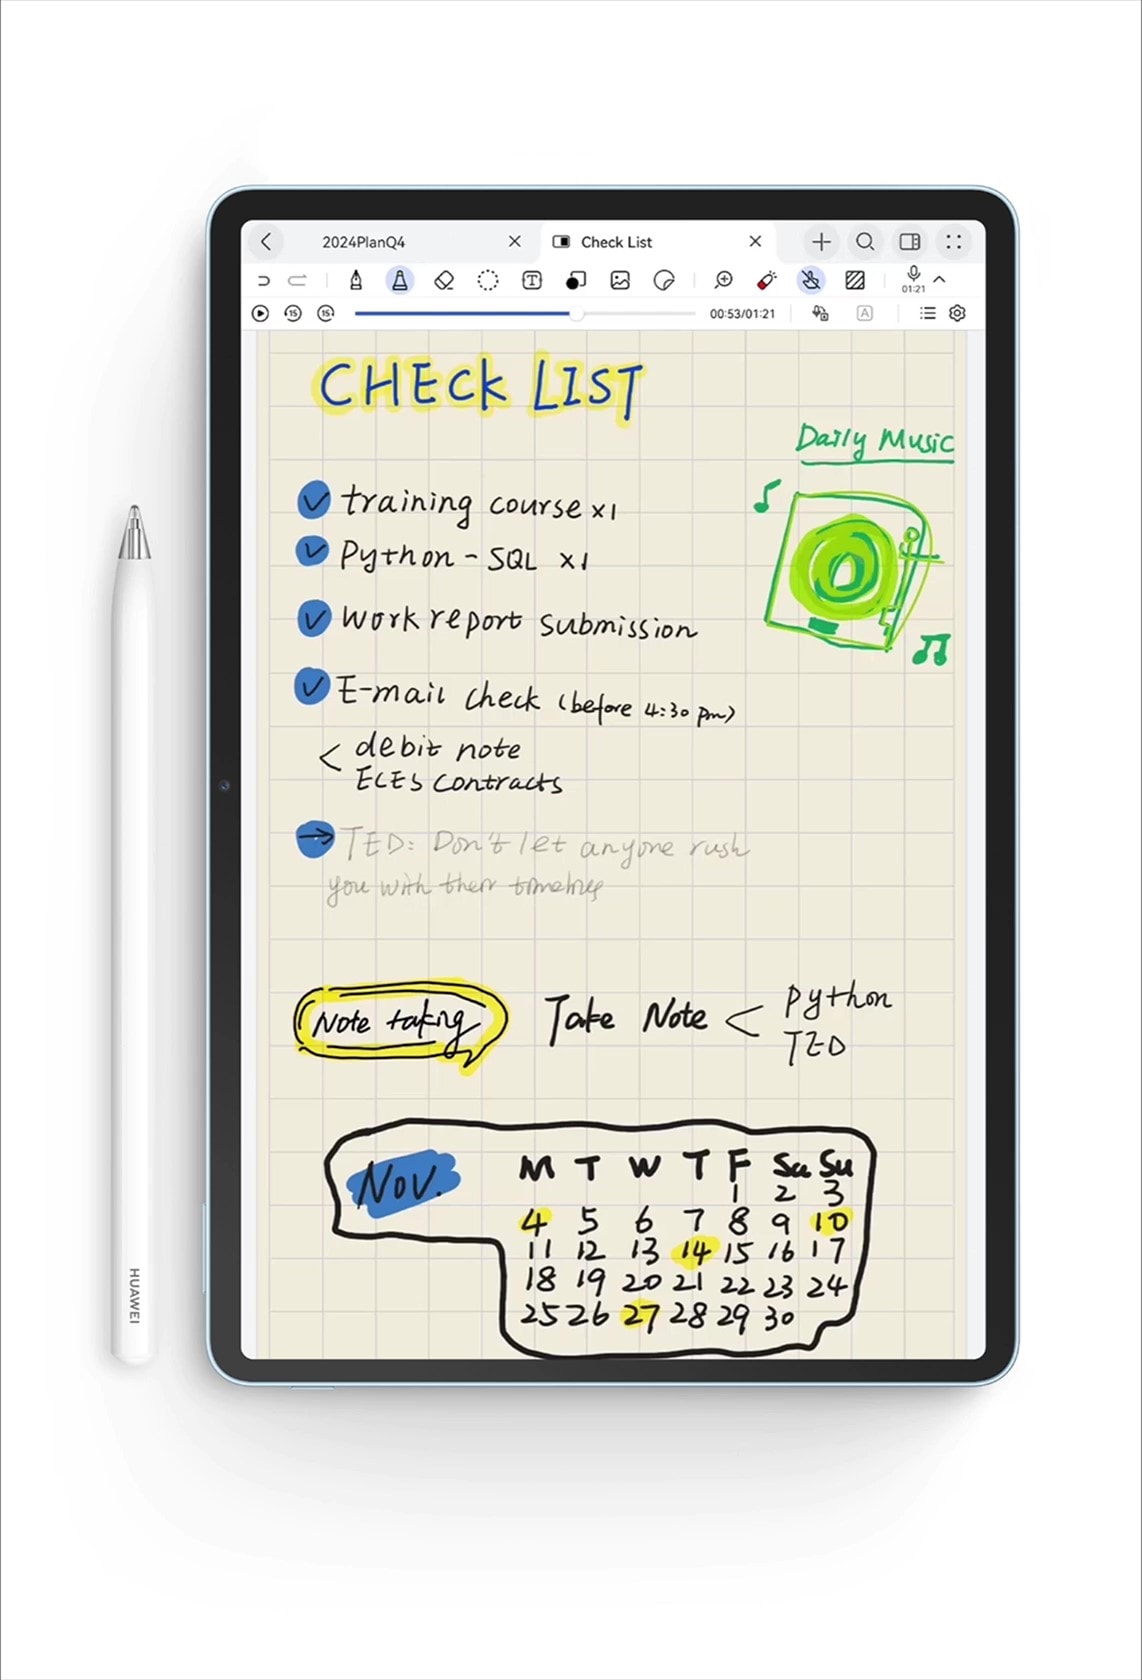 2024PlanQ4
Check List
15
15
00:53/01:21
A
01:21
CHECK LIST
Daily Music
training course x1
Python - SQL x1
Work report submission
E-mail check (before 4:30 pm)
< debit note
ECES contracts
→ TED: Don't let anyone rush
you with their timelines
Note taking
Take Note < Python
TED
Nov.
M T W T F Sa Su
1 2 3
4 5 6 7 8 9 10
11 12 13 14 15 16 17
18 19 20 21 22 23 24
25 26 27 28 29 30
HUAWEI